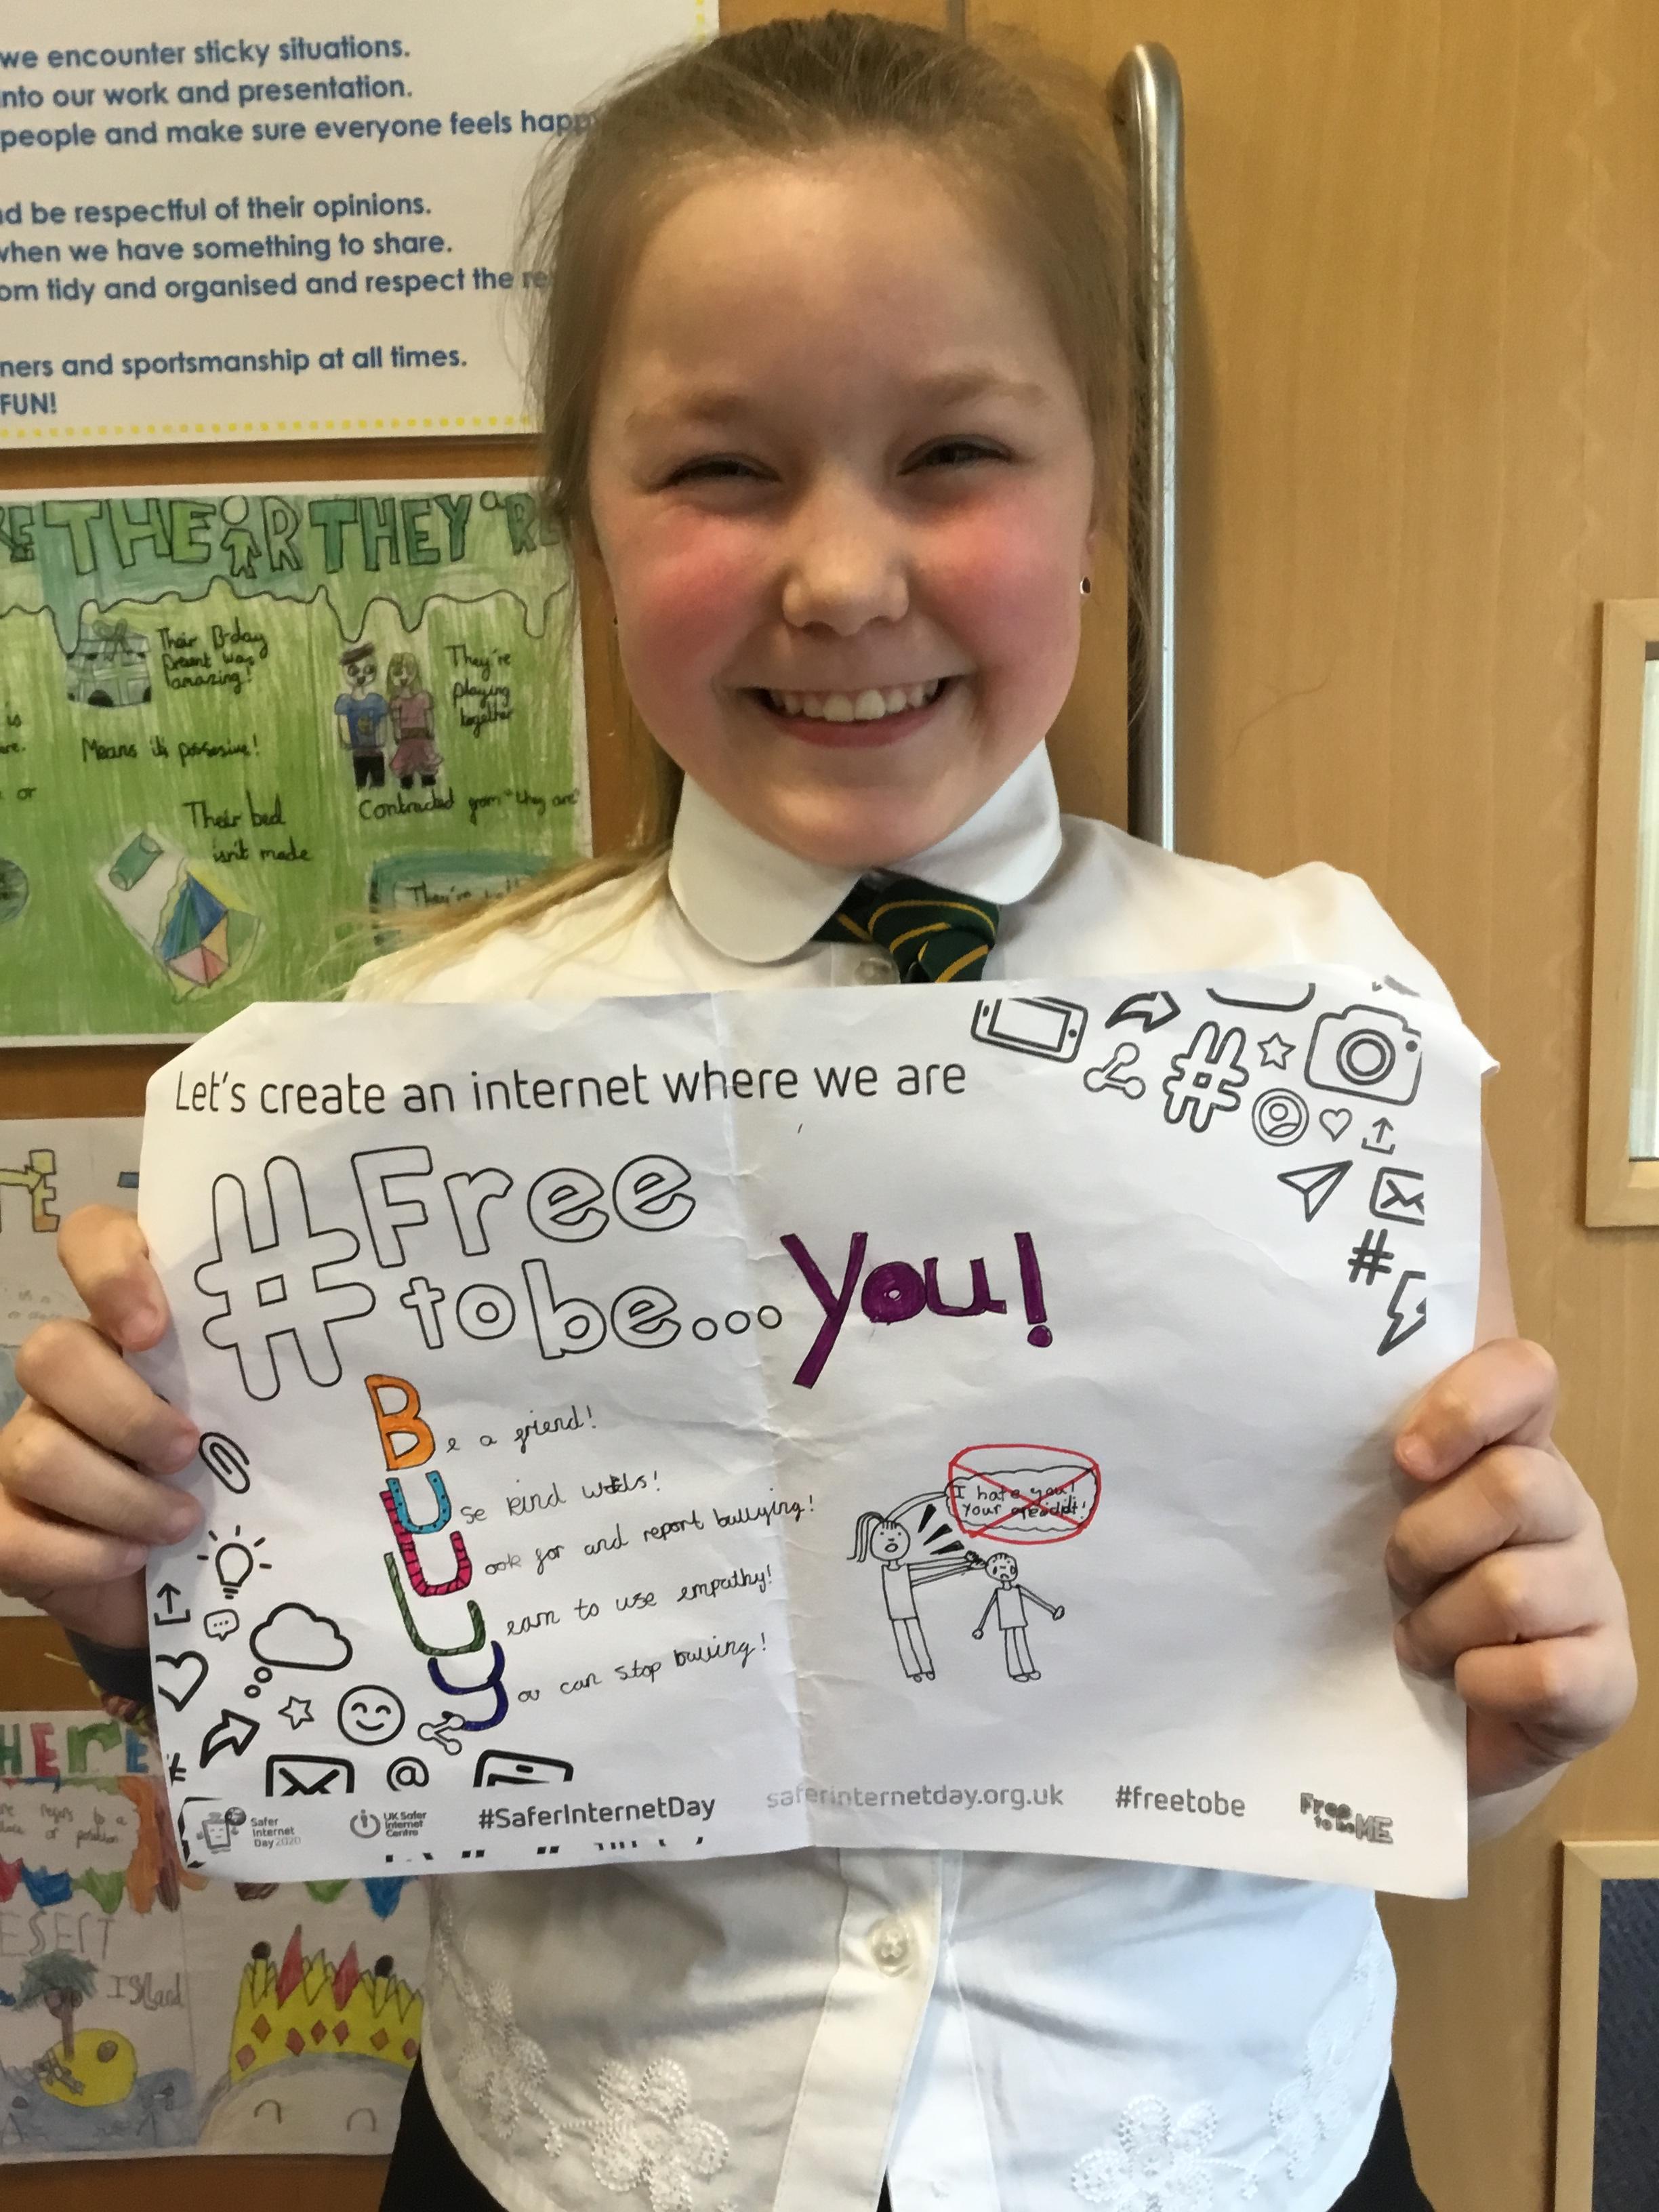 we encounter sticky situations.
into our work and presentation.
people and make sure everyone feels happ
nd be respectful of their opinions.
when we have something to share.
om tidy and organised and respect the re
ners and sportsmanship at all times.
FUN!
THEIR THEY'RE
Their B-day
Present was
amazing!
They're
playing
together
is
Means it's possesive!
or
Contracted from "they are"
Their bed
isn't made
They're
Let's create an internet where we are
#Free
to be... you!
Be a friend!
Use kind words!
Look for and report bullying!
Learn to use empathy!
You can stop bulling!
I hate you!
Your
@
Safer
Internet
Day 2020
UK Safer
Internet
Centre
#SaferInternetDay
saferinternetday.org.uk
#freetobe
Free
to be ME
HEre
ESERT
ISland